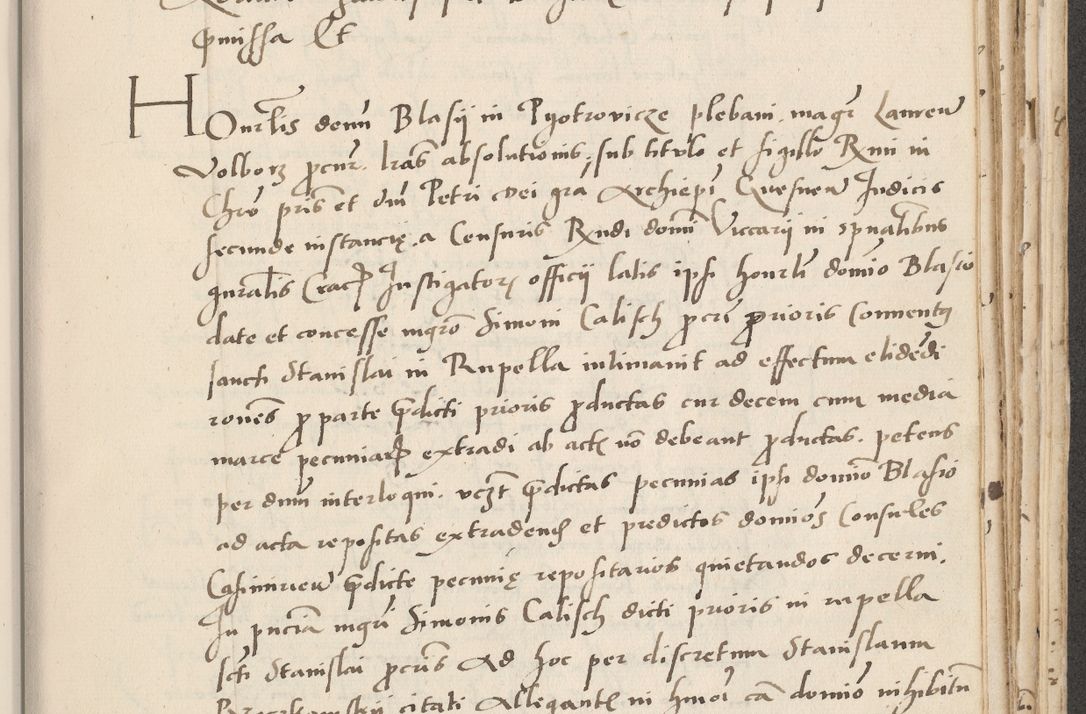 p̄missa Et
Honrlis domi Blasij in Pyotrovicze plebani, magr Lauren
Volborz procur. lras absolutionis, sub titulo et sigillo Rmi in
Chro pris et dni Petri Dei gra Archiepi Gnesnen Judicis
secunde instancie, a Censuris Rndi domi Viccarij in spualibus
gnralis Crac Instigatore officij latis ipsi honrli domino Blasio
date et concesse, mgro Simoni Calisch procri prioris Conventus
sancti Stanislai in Rupella intimavit ad effectum elidedi
rones pro parte predicti prioris productas cur decem cum media
marce pecuniar extradi ab actis no debeant productas, petens
per dnm interloqui, vczt predictas pecunias ipsi domino Blasio
ad acta repositas extradend et predictos dominos Consules
Casimirien predicte pecunie repositarios quietandos decerni,
In pncia mgri Simonis Calisch dicti prioris in rupella
scti Stanislai procris Ad hoc per discretum Stanislaum
citati Allegantis in hmoi ca domino inhibitu